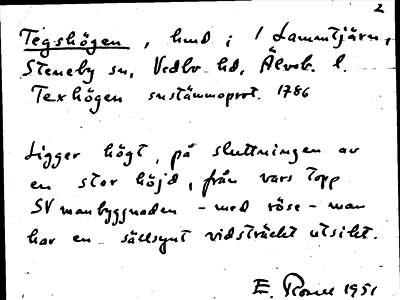 2
Tegshögen, hmd i / Lammtjärn,
Steneby sn, Vedbo hd, Älvsb. l.
Texhögen sustämmoprot. 1786
Ligger högt, på sluttningen av
en stor höjd, från vars topp
SV manbyggnaden - med röse - man
har en sällsynt vidsträckt utsikt.
E. 1951